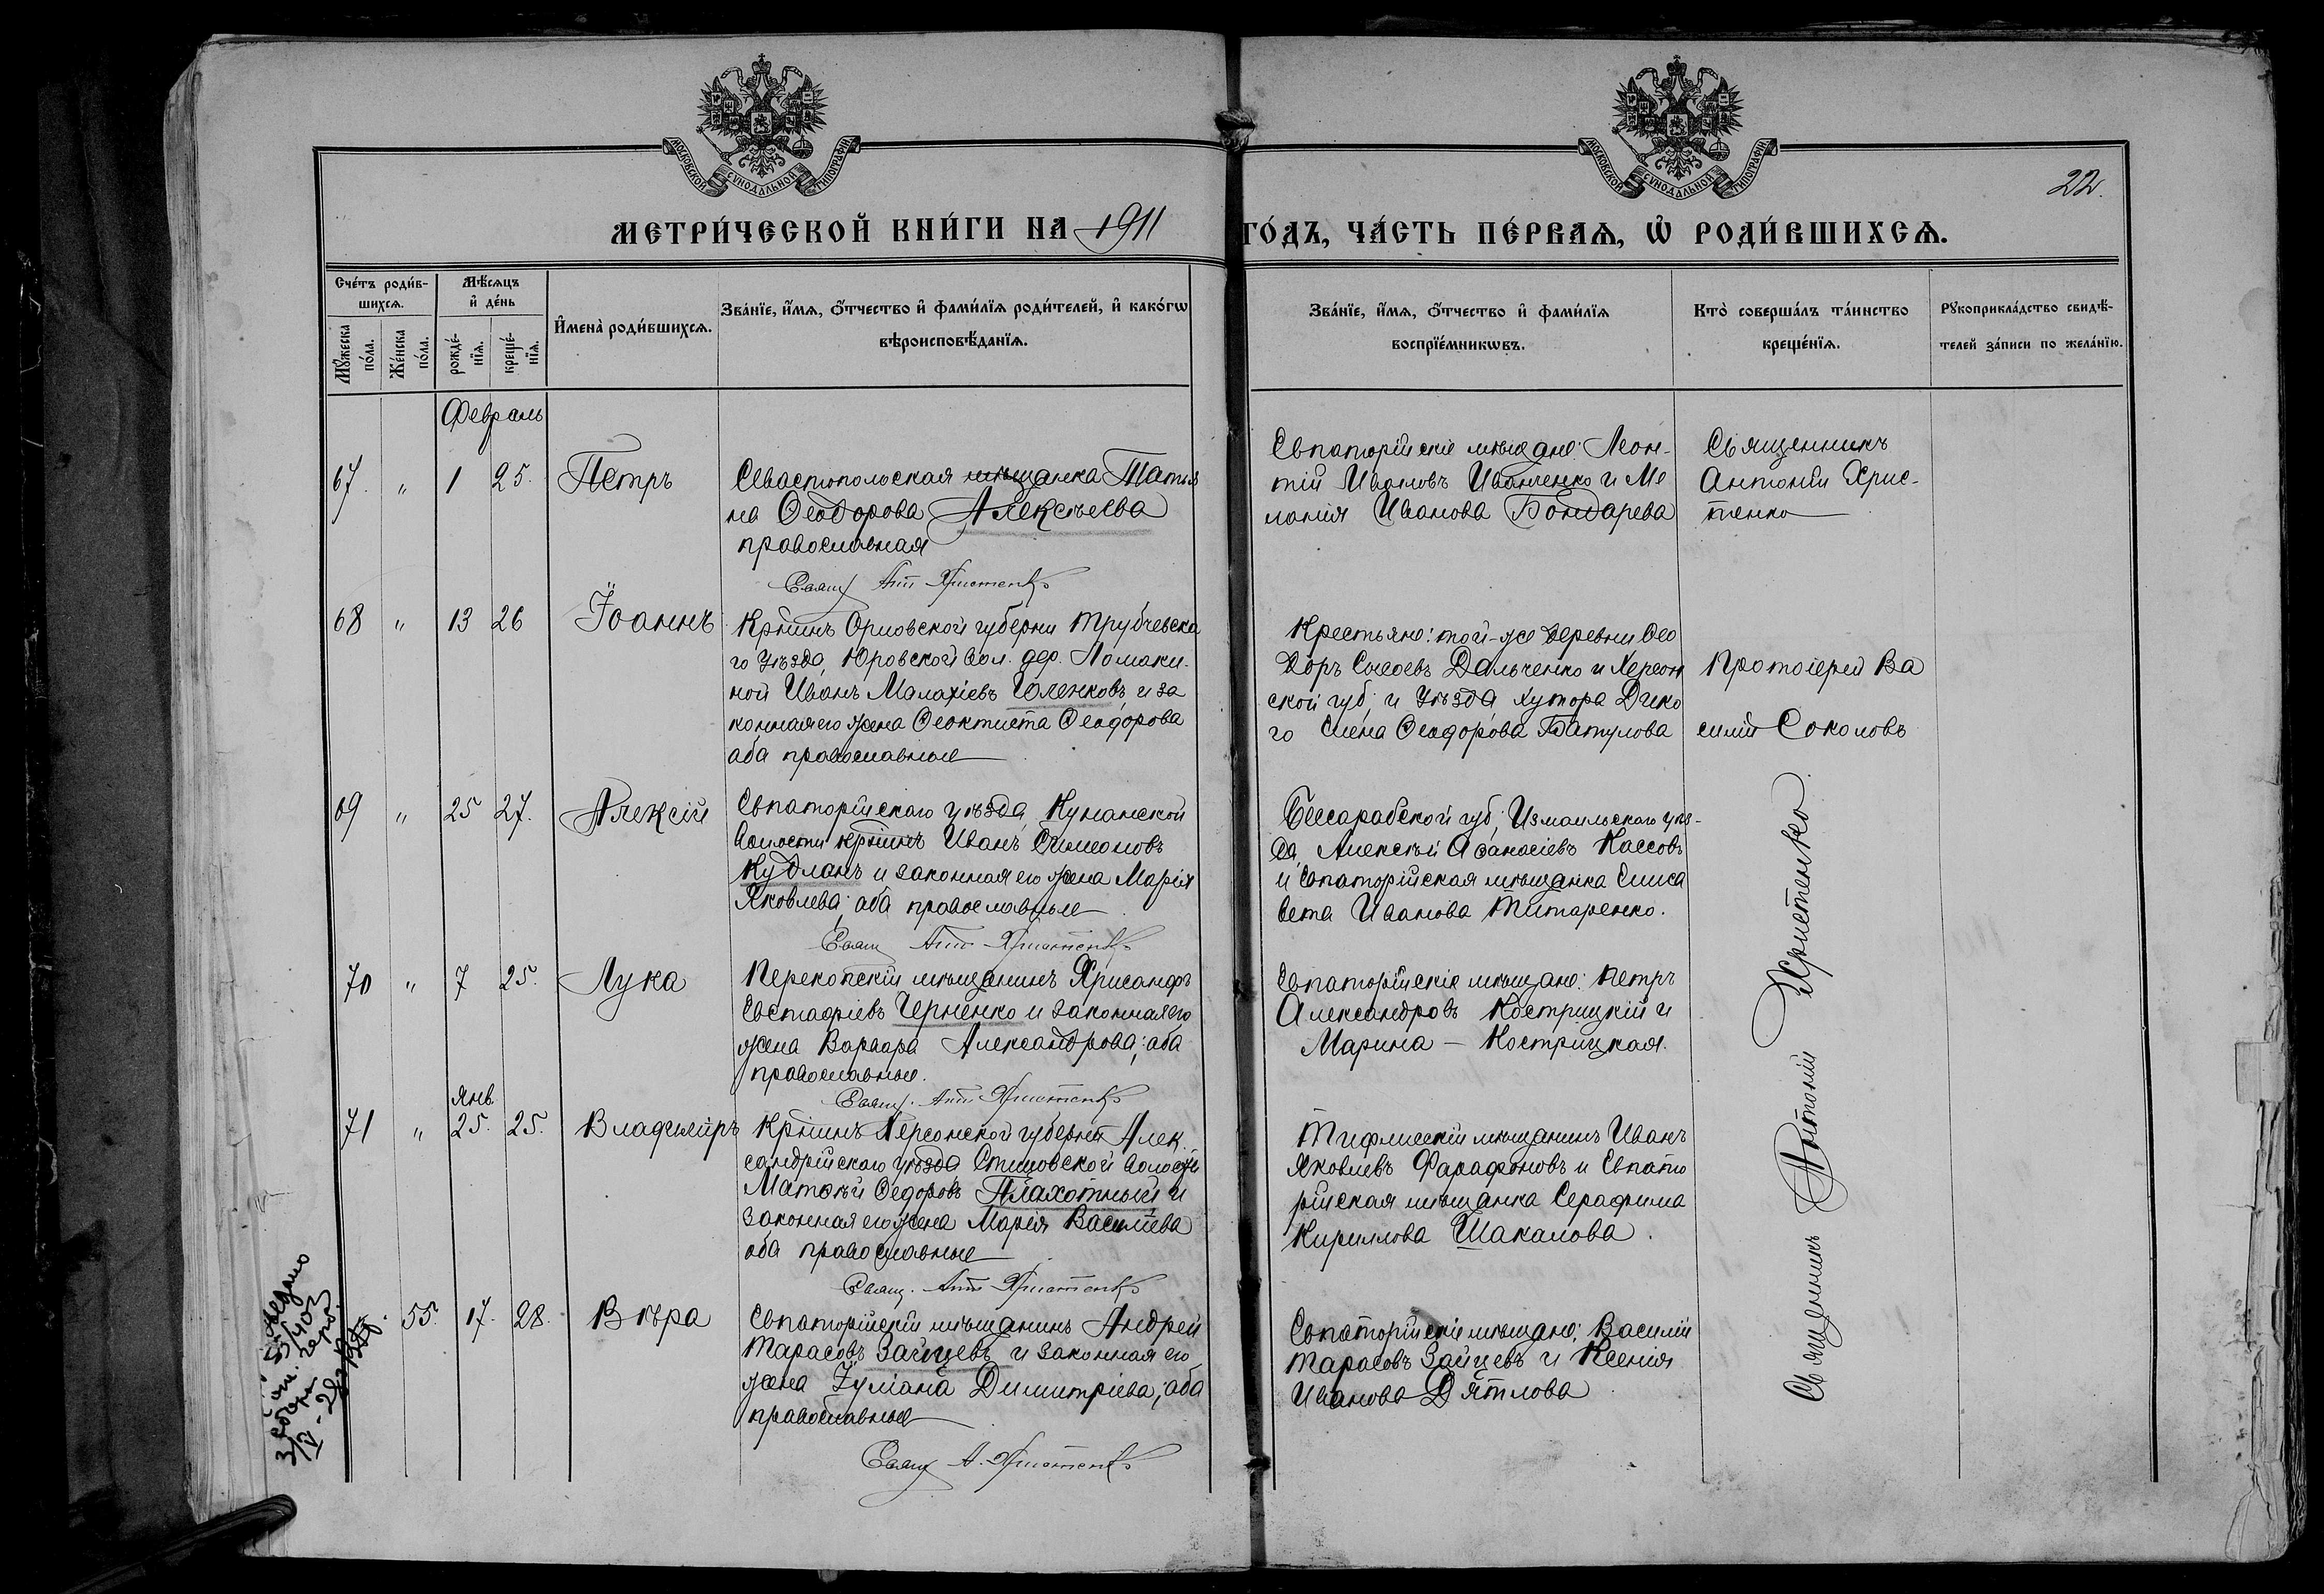 МОСКОВСКОЙ СѴНОДАЛЬНОЙ ТИПОГРАФІИ
МОСКОВСКОЙ СѴНОДАЛЬНОЙ ТИПОГРАФІИ
22.
МЕТРИ́ЧЕСКОЙ КНИ́ГИ НА 1911 ГО́ДЪ, ЧА́СТЬ ПЕ́РВАѦ, Ѡ҆ РОДИ́ВШИХСѦ.
Сче́тъ роди́в-
шихсѧ.
Мꙋ́жеска
по́ла.
Же́нска
по́ла.
Мѣ́сѧцъ
и҆ де́нь
рожде́-
нїѧ.
креще́-
нїѧ.
И҆мена̀ роди́вшихсѧ.
Зва́нїе, и҆́мѧ, ѻ҆́тчество и҆ фами́лїѧ роди́телей, и҆ како́гѡ
вѣроисповѣ́данїѧ.
Зва́нїе, и҆́мѧ, ѻ҆́тчество и҆ фами́лїѧ
воспрїе́мникѡвъ.
Кто̀ соверша́лъ та́инство
креще́нїѧ.
Рꙋкоприкла́дство свидѣ́-
телей за́писи по жела́нїю.
Февраль
67. " 1 25. Петръ
Севастопольская мѣщанка Татья
на Ѳеодорова Алексѣева
православная
Свящ Ант Христенко
Евпаторійскіе мѣщане: Леон-
тій Ивановъ Иванченко и Ме
ланія Иванова Бондарева
Священникъ
Антоній Хрис-
тенко
68 " 13 26 Іоаннъ
Крѣинъ Орловской губерни Трубчевска
го уѣзда, Юровской вол. дер. Ломаки-
ной Иванъ Малахіевъ Юленковъ, и за
конная его жена Ѳеоктиста Ѳеодорова
оба православные
Крестьяне: той-же деревни Ѳео
доръ Дальченко и Херсон
ской губ. и уѣзда хутора Дико
го Елена Ѳеодорова Батулова
Протоіерей Ва
силій Соколовъ
69 " 25 27. Алексій
Евпаторійскаго уѣзда, Кунанской
волости крѣинъ Иванъ Симеоновъ
Кудланъ и законная его жена Марія
Яковлева; оба православные
Свящ Ант Христенко
Бессарабской губ, Измаильскаго уѣз-
да, Алексѣй Аѳанасіевъ Кассовъ
и Евпаторійская мѣщанка Елиса
вета Иванова Титаренко.
70 " 7 25. Лука
Перекопскій мѣщанинъ Хрисанфъ
Евстафіевъ Черненко и законная его
жена Варвара Александрова; оба
православные.
Свящ. Ант Христенко
Евпаторійскіе мѣщане: Петръ
Александровъ Кострицкій и
Марина - Кострицкая.
Янв.
71 " 25. 25. Владиміръ
Крѣинъ Херсонской губерніи Алек
сандрійскаго уѣзда волости
Матѳѣй Ѳедоровъ Плахотный и
законная его жена Марія Василіева
оба православные
Свящ. Ант Христенко
Тифлисскій мѣщанинъ Иванъ
Яковлевъ Фарафоновъ и Евпато
рійская мѣщанка Серафима
Кириллова Шакалова.
55. 17. 28. Вѣра
Евпаторійскій мѣщанинъ Андрей
Тарасовъ Зайцевъ и законная его
жена Іуліана Димитріева; оба
православные
Свящ А. Христенко
Евпаторійскіе мѣщане; Василій
Тарасовъ Зайцевъ и Ксенія
Иванова Дятлова
Священникъ Антоній Христенко